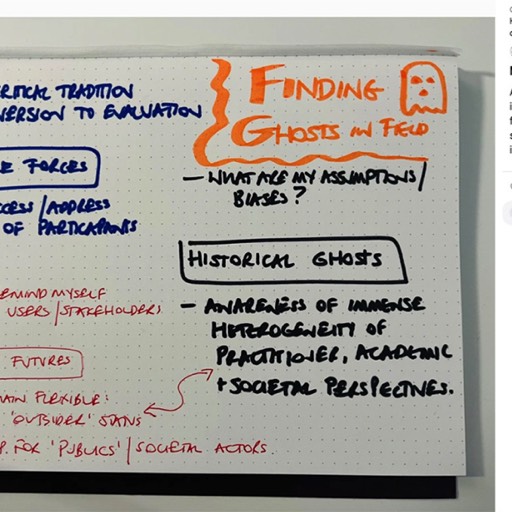 FINDING
GHOSTS IN FIELD
- WHAT ARE MY ASSUMPTIONS/
BIASES?
HISTORICAL GHOSTS
- AWARENESS OF IMMENSE
HETEROGENEITY OF
PRACTITIONER, ACADEMIC
+ SOCIETAL PERSPECTIVES.
RITICAL TRADITION
VERSION TO EVALUATION
E FORCES
CCESS/ADDRESS
OF PARTICIPANTS
EMIND MYSELF
USERS/STAKEHOLDERS
FUTURES
MAIN FLEXIBLE:
'OUTSIDER' STATUS
P. FOR 'PUBLICS'/SOCIETAL ACTORS.